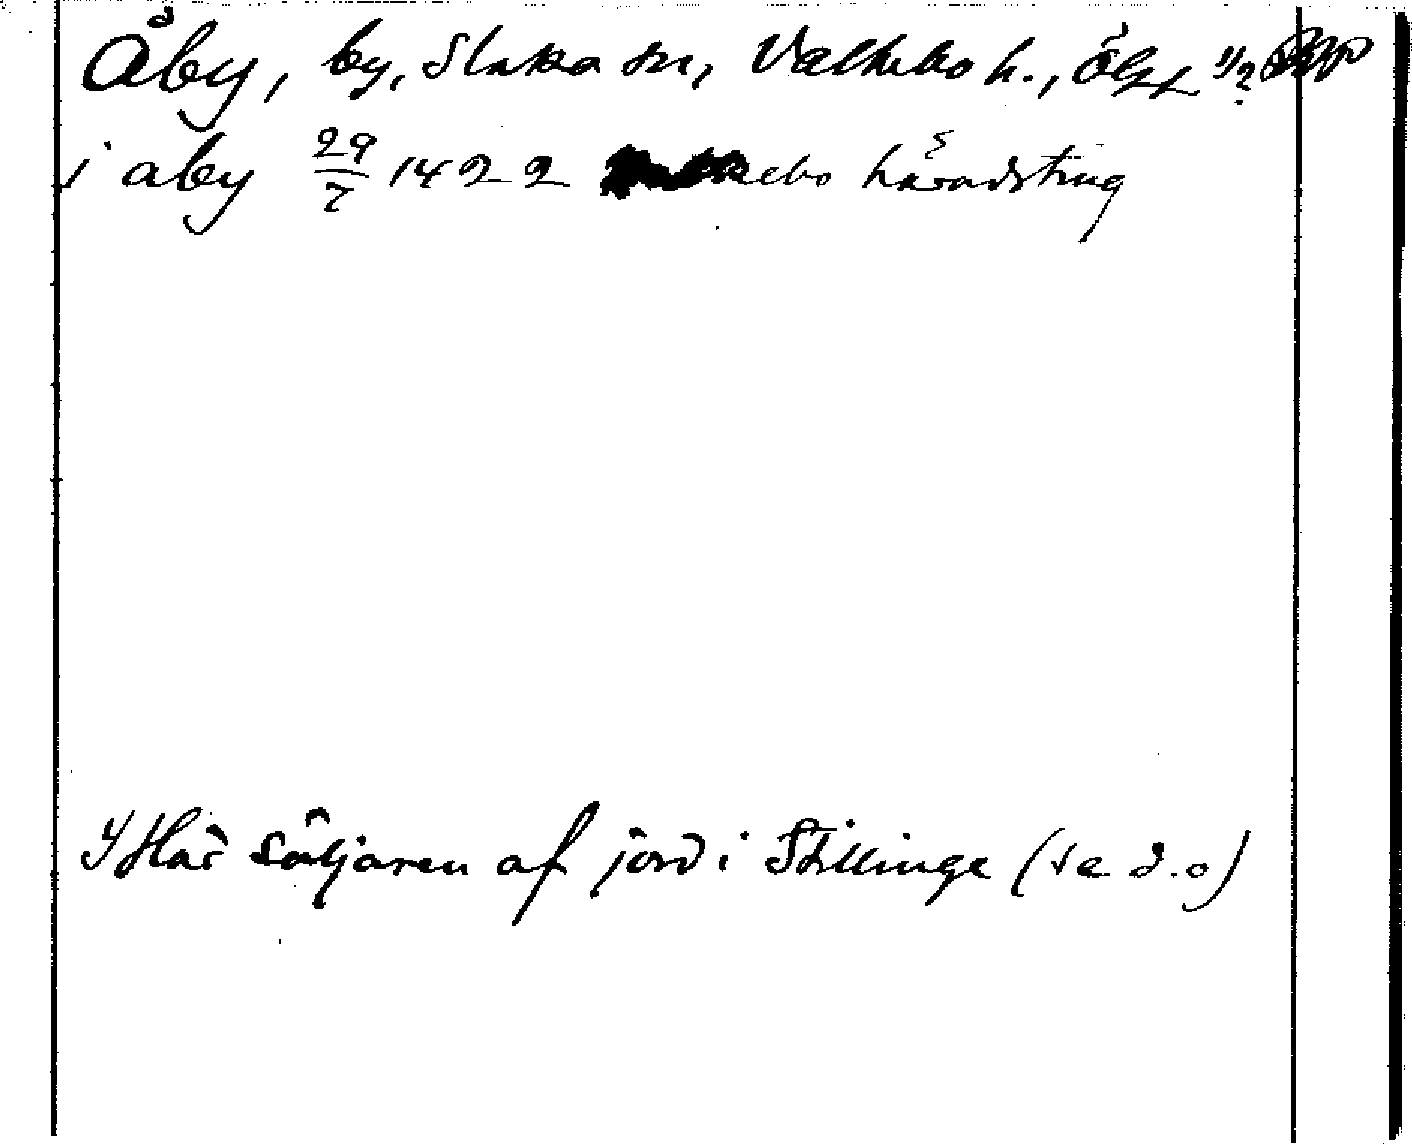 Åby, by, Slaka sn, Valkebo h., Ögl 1/2
i aby 29/7 1422 kebo häradsting
Här säljaren af jord i Stillinge (se d.o)